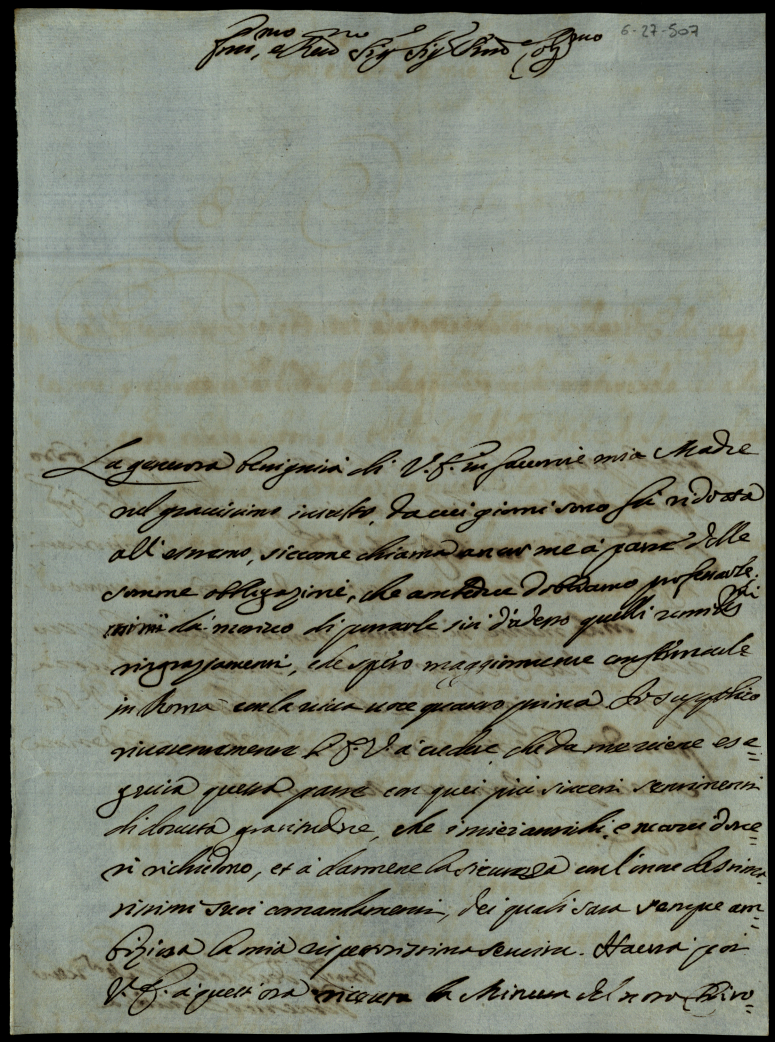 6-27-507
Em.mo, e Re.mo Sig.r Sig.r P.ron Col.mo
La generosa benignità di V. E. in favorire mia Madre
nel gravissimo insulto, da cui giorni sono fù ridotta
all'estremo, siccome chiama ancor me à parte delle
somme obbligazioni, che doviamo professarle,
di portarle sin d'adesso quelli umili
ringraziamenti, che spero maggiormente confirmarle
in Roma con la viva voce quanto prima. Io supplico
riverentemente l'E. V. à credere che da me viene ese=
guita questa parte con quei più sinceri sentimenti
di dovuta gratitudine, che i miei antichi, e nuovi dove=
ri richiedono, et à darmene la sicurezza con l'onore de stima=
tissimi suoi comandamenti, dei quali sarà sempre am=
biziosa la mia rispettosissima servitù. Haverà poi
V. E. à quest'ora ricevuta la Minuta del noto